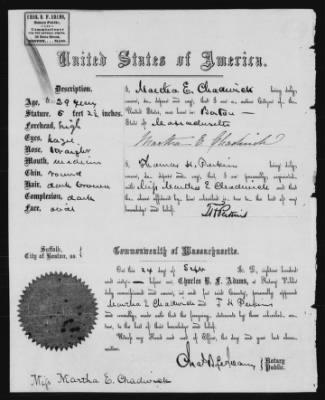 CHAS. B. F. ADAMS,
Notary Public,
Commissioner
United States of America.
Description.
Age, 29 years
Stature, 5 feet 2½ inches
Forehead, high
Eyes, hazel
Nose, straight
Mouth, medium
Chin, round
Hair, dark brown
Complexion, dark
Face, oval
I, Martha E. Chadwick being duly
sworn, do depose and say, that I am a native Citizen of the
United States, and born in Boston
State of Massachusetts
Martha E. Chadwick
I, Thomas H. Perkins being duly
sworn, do depose and say, that I am acquainted with
said Miss Martha E Chadwick and that
the above affidavit by her is true to the best of my
knowledge and belief.
T H Perkins
Suffolk,
City of Boston, ss.
Commonwealth of Massachusetts.
On this 24 day of Sept A. D. eighteen hundred
and sixty — before me, Charles B. F. Adams, a Notary Public
duly commissioned and sworn, personally appeared
Martha E Chadwick and T H Perkins
and severally made oath that the foregoing statements by them subscribed are
true, to the best of their knowledge and belief.
Witness my Hand and seal of Office, the day and year last above
written.
Chas B F Adams
Notary
Public.
Miss Martha E. Chadwick